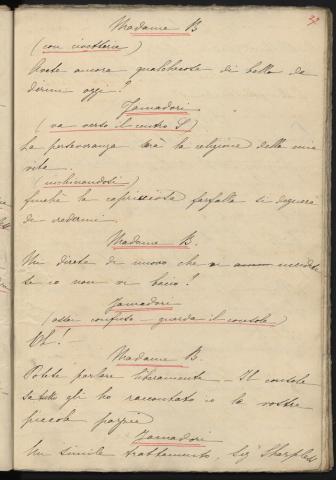 37
Madame B
(con civetteria)
Avete ancora qualchecosa di bello da
dirmi oggi?
Jamadori
(va verso il centro S)
La perseveranza sarà la religione della mia
vita.
(inchinandosi)
finchè la capricciosa farfalla si degnerà
di credermi.
Madame B.
Mi direte di nuovo che vi
se io non vi bacio?
Jamadori
confuso – guarda il console)
Oh! –
Madame B.
Potete parlare liberamente – Il console
sa tutto gli ho raccontato io la vostra
piccola pazzia
Jamadori
Un simile trattamento, Sigr Sharpless